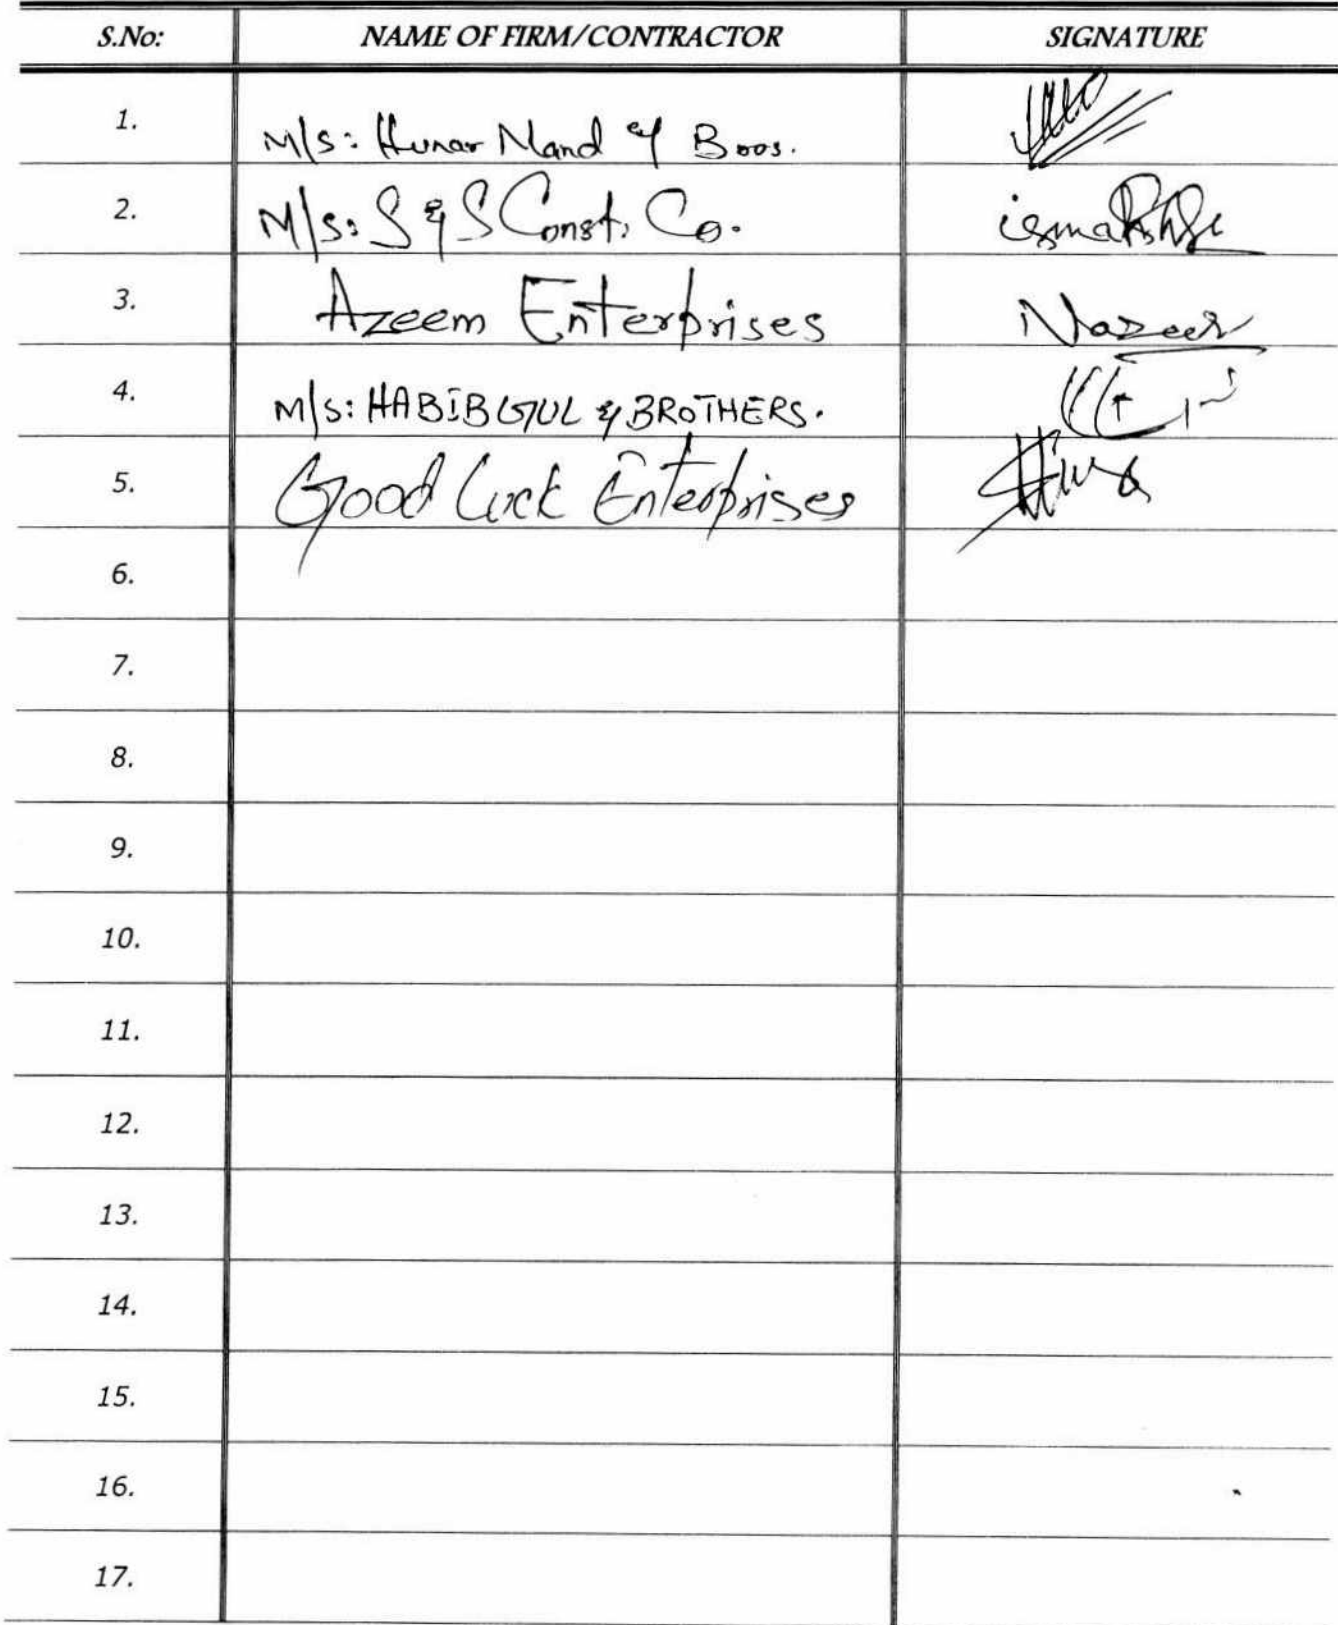 S.No: NAME OF FIRM/CONTRACTOR SIGNATURE
1. M/s: Hunar Mand & Bros.
2. M/s: S & S Const. Co.
3. Azeem Enterprises Nazeer
4. M/s: HABIB GUL & BROTHERS.
5. Good Luck Enterprises
6.
7.
8.
9.
10.
11.
12.
13.
14.
15.
16.
17.